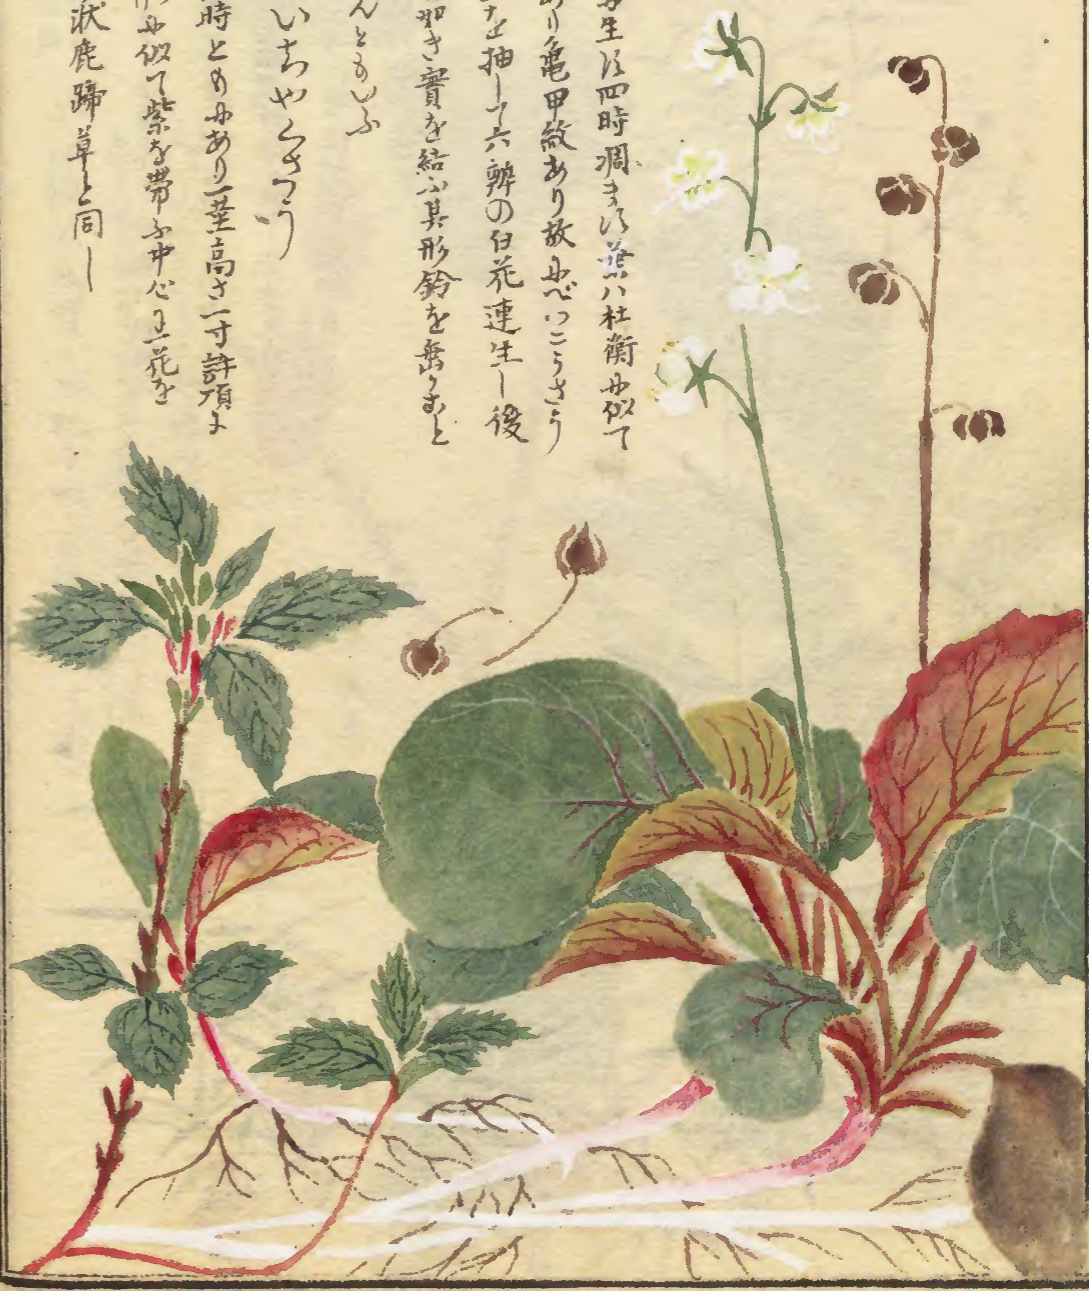 生す四時凋ます葉ハ杜衡に似て
あり亀甲紋あり故にべつこうさう
を抽して六瓣の白花連生し後
き實を結ふ其形鈴を垂るゝこと
んともいふ
いちやくさう
時ともにあり一莖高さ一寸許頂よ
に似て紫を帶ふ中心に一花を
状鹿蹄草と同し